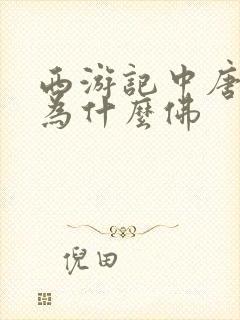 西游記中唐
為什麼佛
倪田